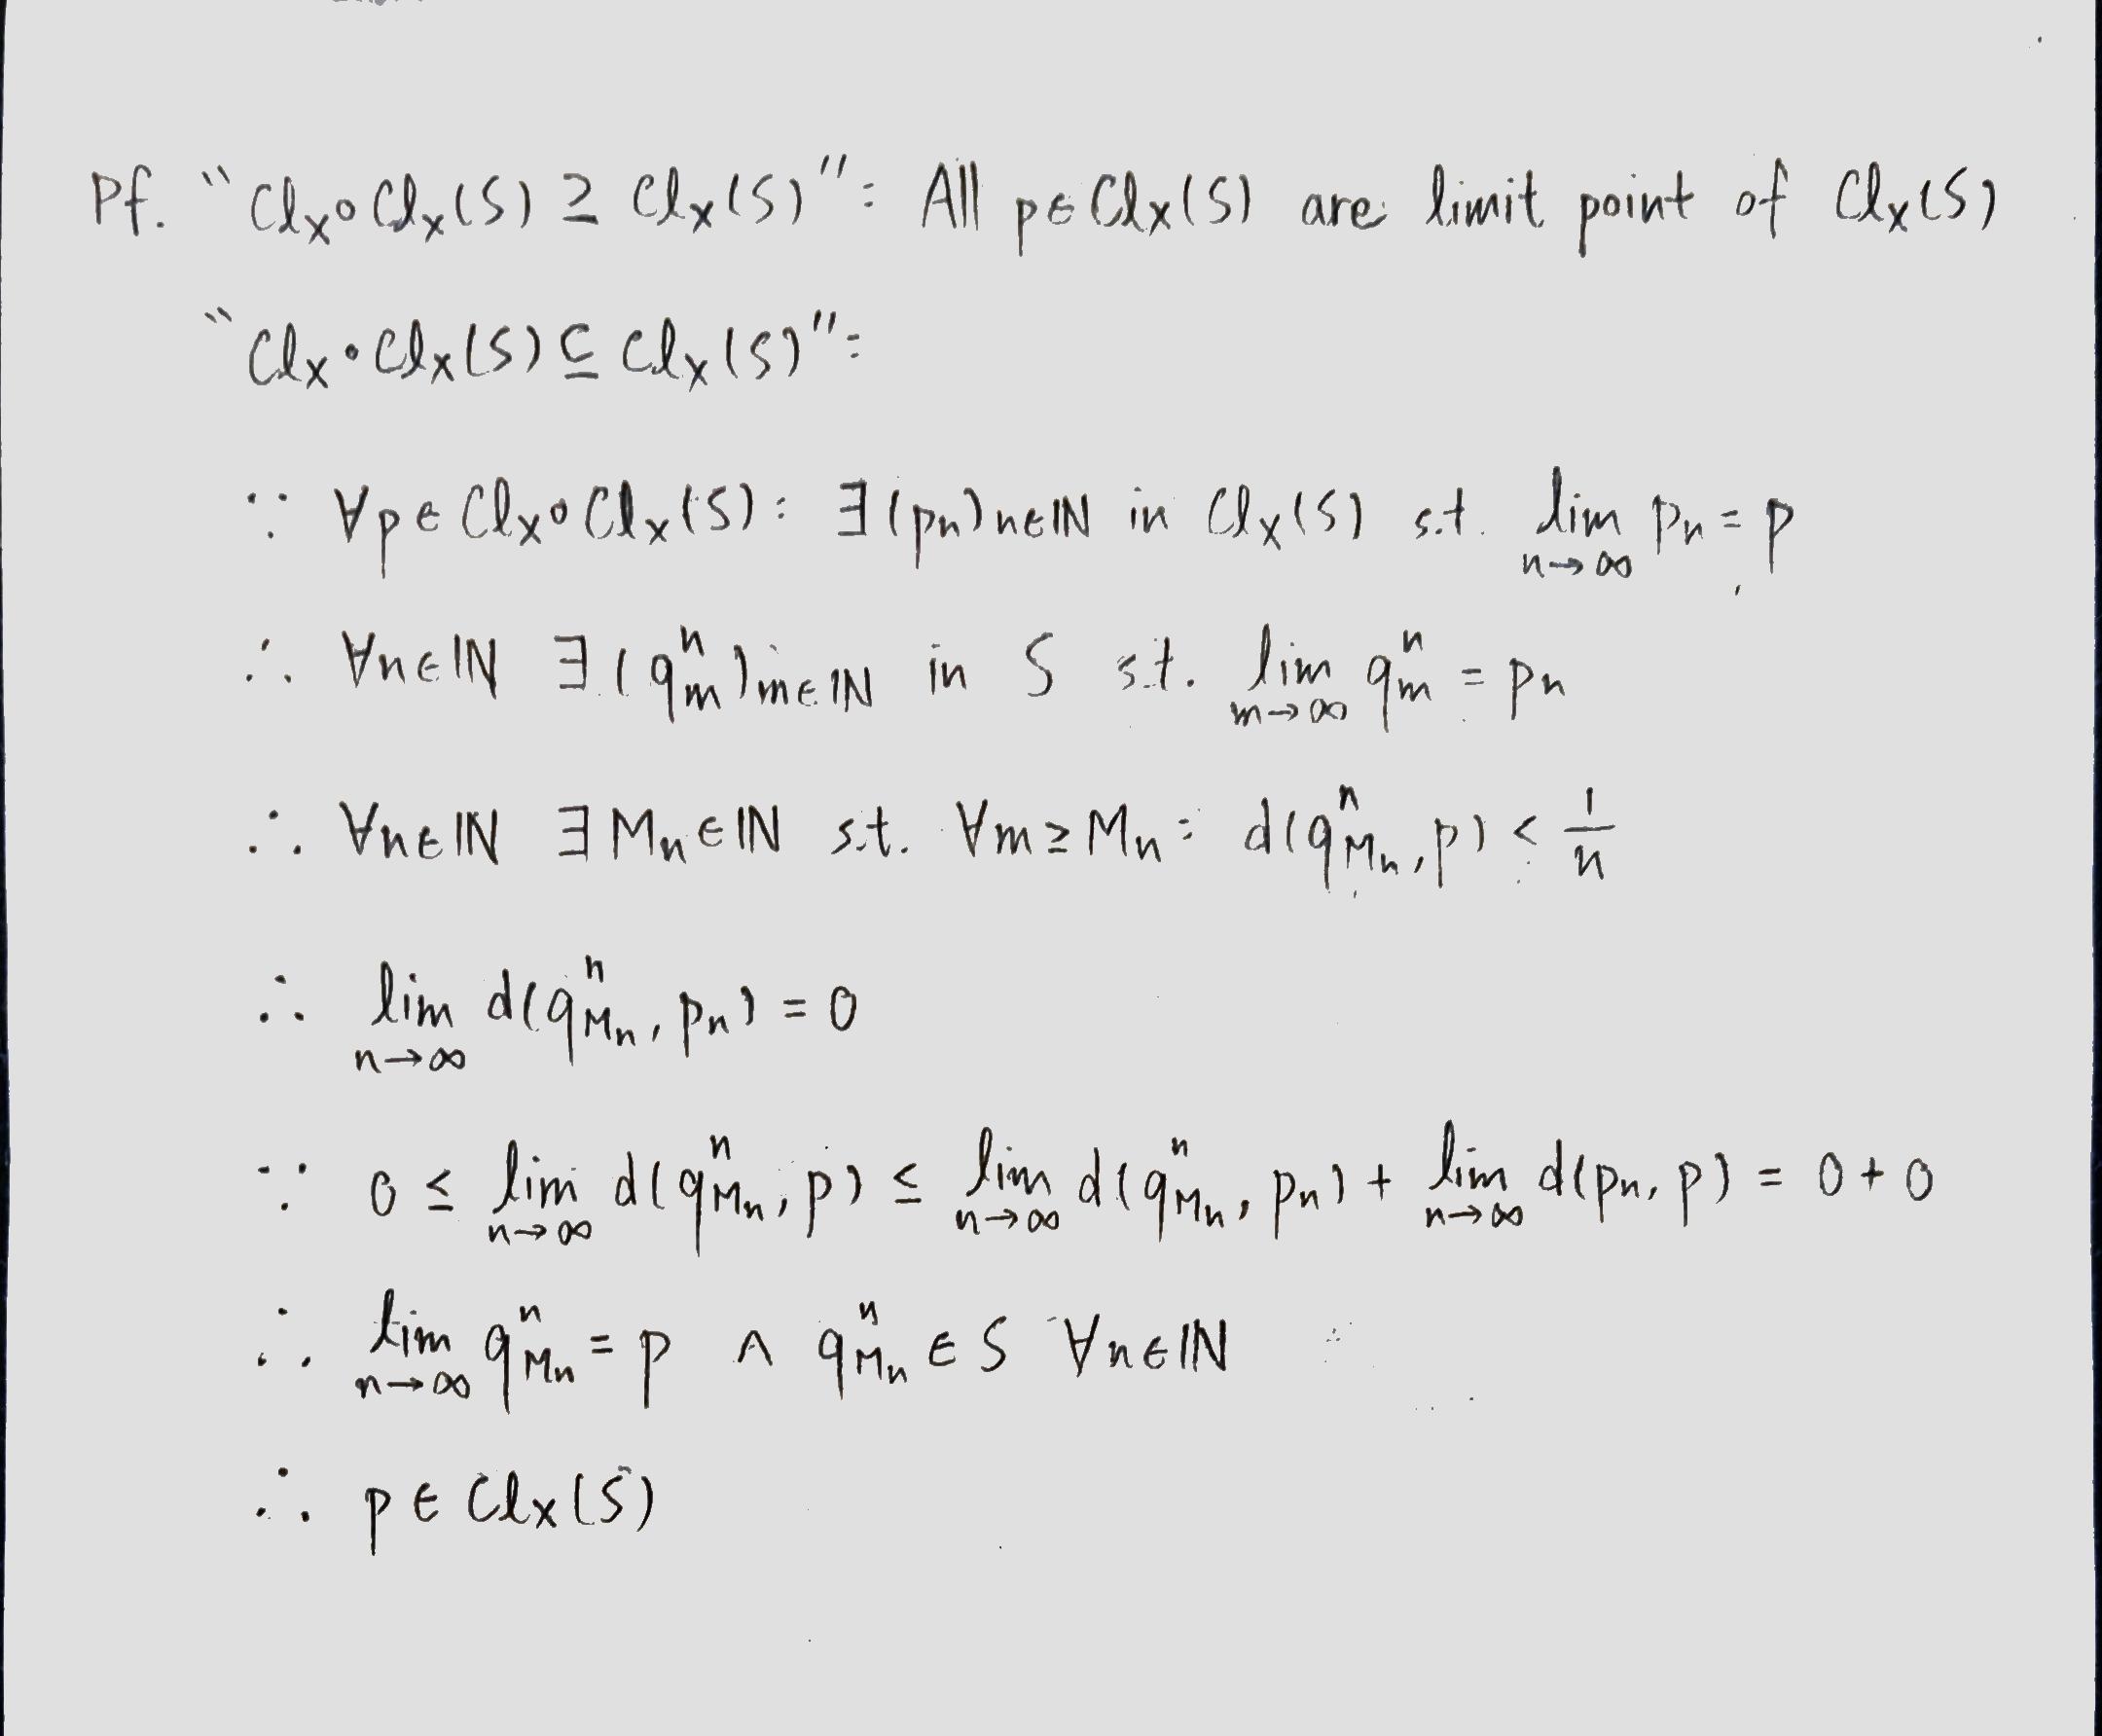 Pf. "Clₓ∘Clₓ(S) ⊇ Clₓ(S)": All p∈Clₓ(S) are limit point of Clₓ(S)
"Clₓ∘Clₓ(S) ⊆ Clₓ(S)":
∵ ∀p∈Clₓ∘Clₓ(S): ∃(pₙ)n∈ℕ in Clₓ(S) s.t. lim_{n→∞} pₙ = p
∴ ∀n∈ℕ ∃(q^n_m)m∈ℕ in S s.t. lim_{m→∞} q^n_m = pₙ
∴ ∀n∈ℕ ∃Mₙ∈ℕ s.t. ∀m≥Mₙ: d(q^n_{Mₙ}, p) < 1/n
∴ lim_{n→∞} d(q^n_{Mₙ}, pₙ) = 0
∵ 0 ≤ lim_{n→∞} d(q^n_{Mₙ}, p) ≤ lim_{n→∞} d(q^n_{Mₙ}, pₙ) + lim_{n→∞} d(pₙ, p) = 0 + 0
∴ lim_{n→∞} q^n_{Mₙ} = p ∧ q^n_{Mₙ} ∈ S ∀n∈ℕ
∴ p∈Clₓ(S)